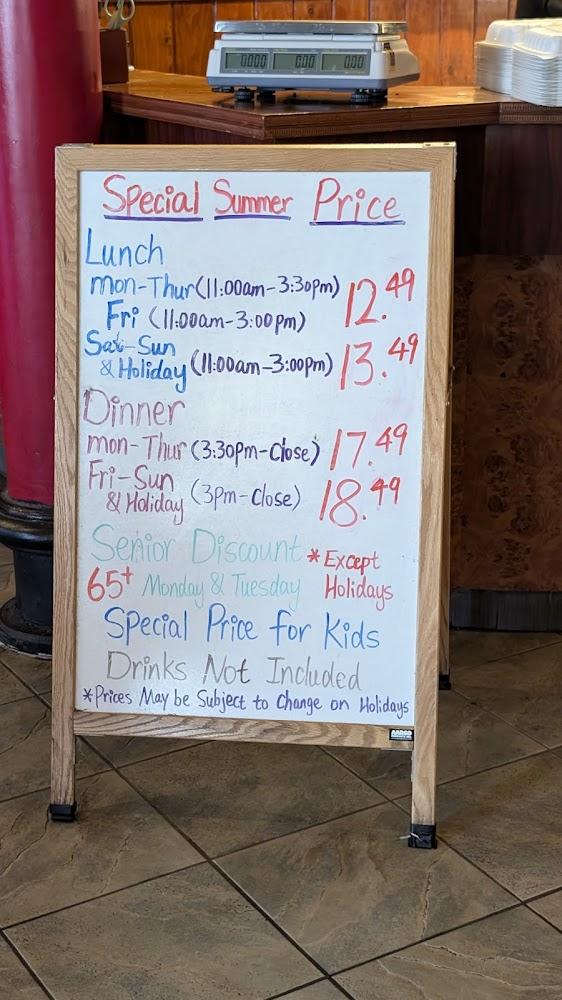 0.000 0.00 0.00
Special Summer Price
Lunch
mon-Thur (11:00am-3:30pm) 12.49
Fri (11:00am-3:00pm)
Sat-Sun
& Holiday (11:00am-3:00pm) 13.49
Dinner
mon-Thur (3:30pm-Close) 17.49
Fri-Sun
& Holiday (3pm-Close) 18.49
Senior Discount
*Except
65+ Monday & Tuesday Holidays
Special Price for Kids
Drinks Not Included
*Prices May be Subject to Change on Holidays
AARCO